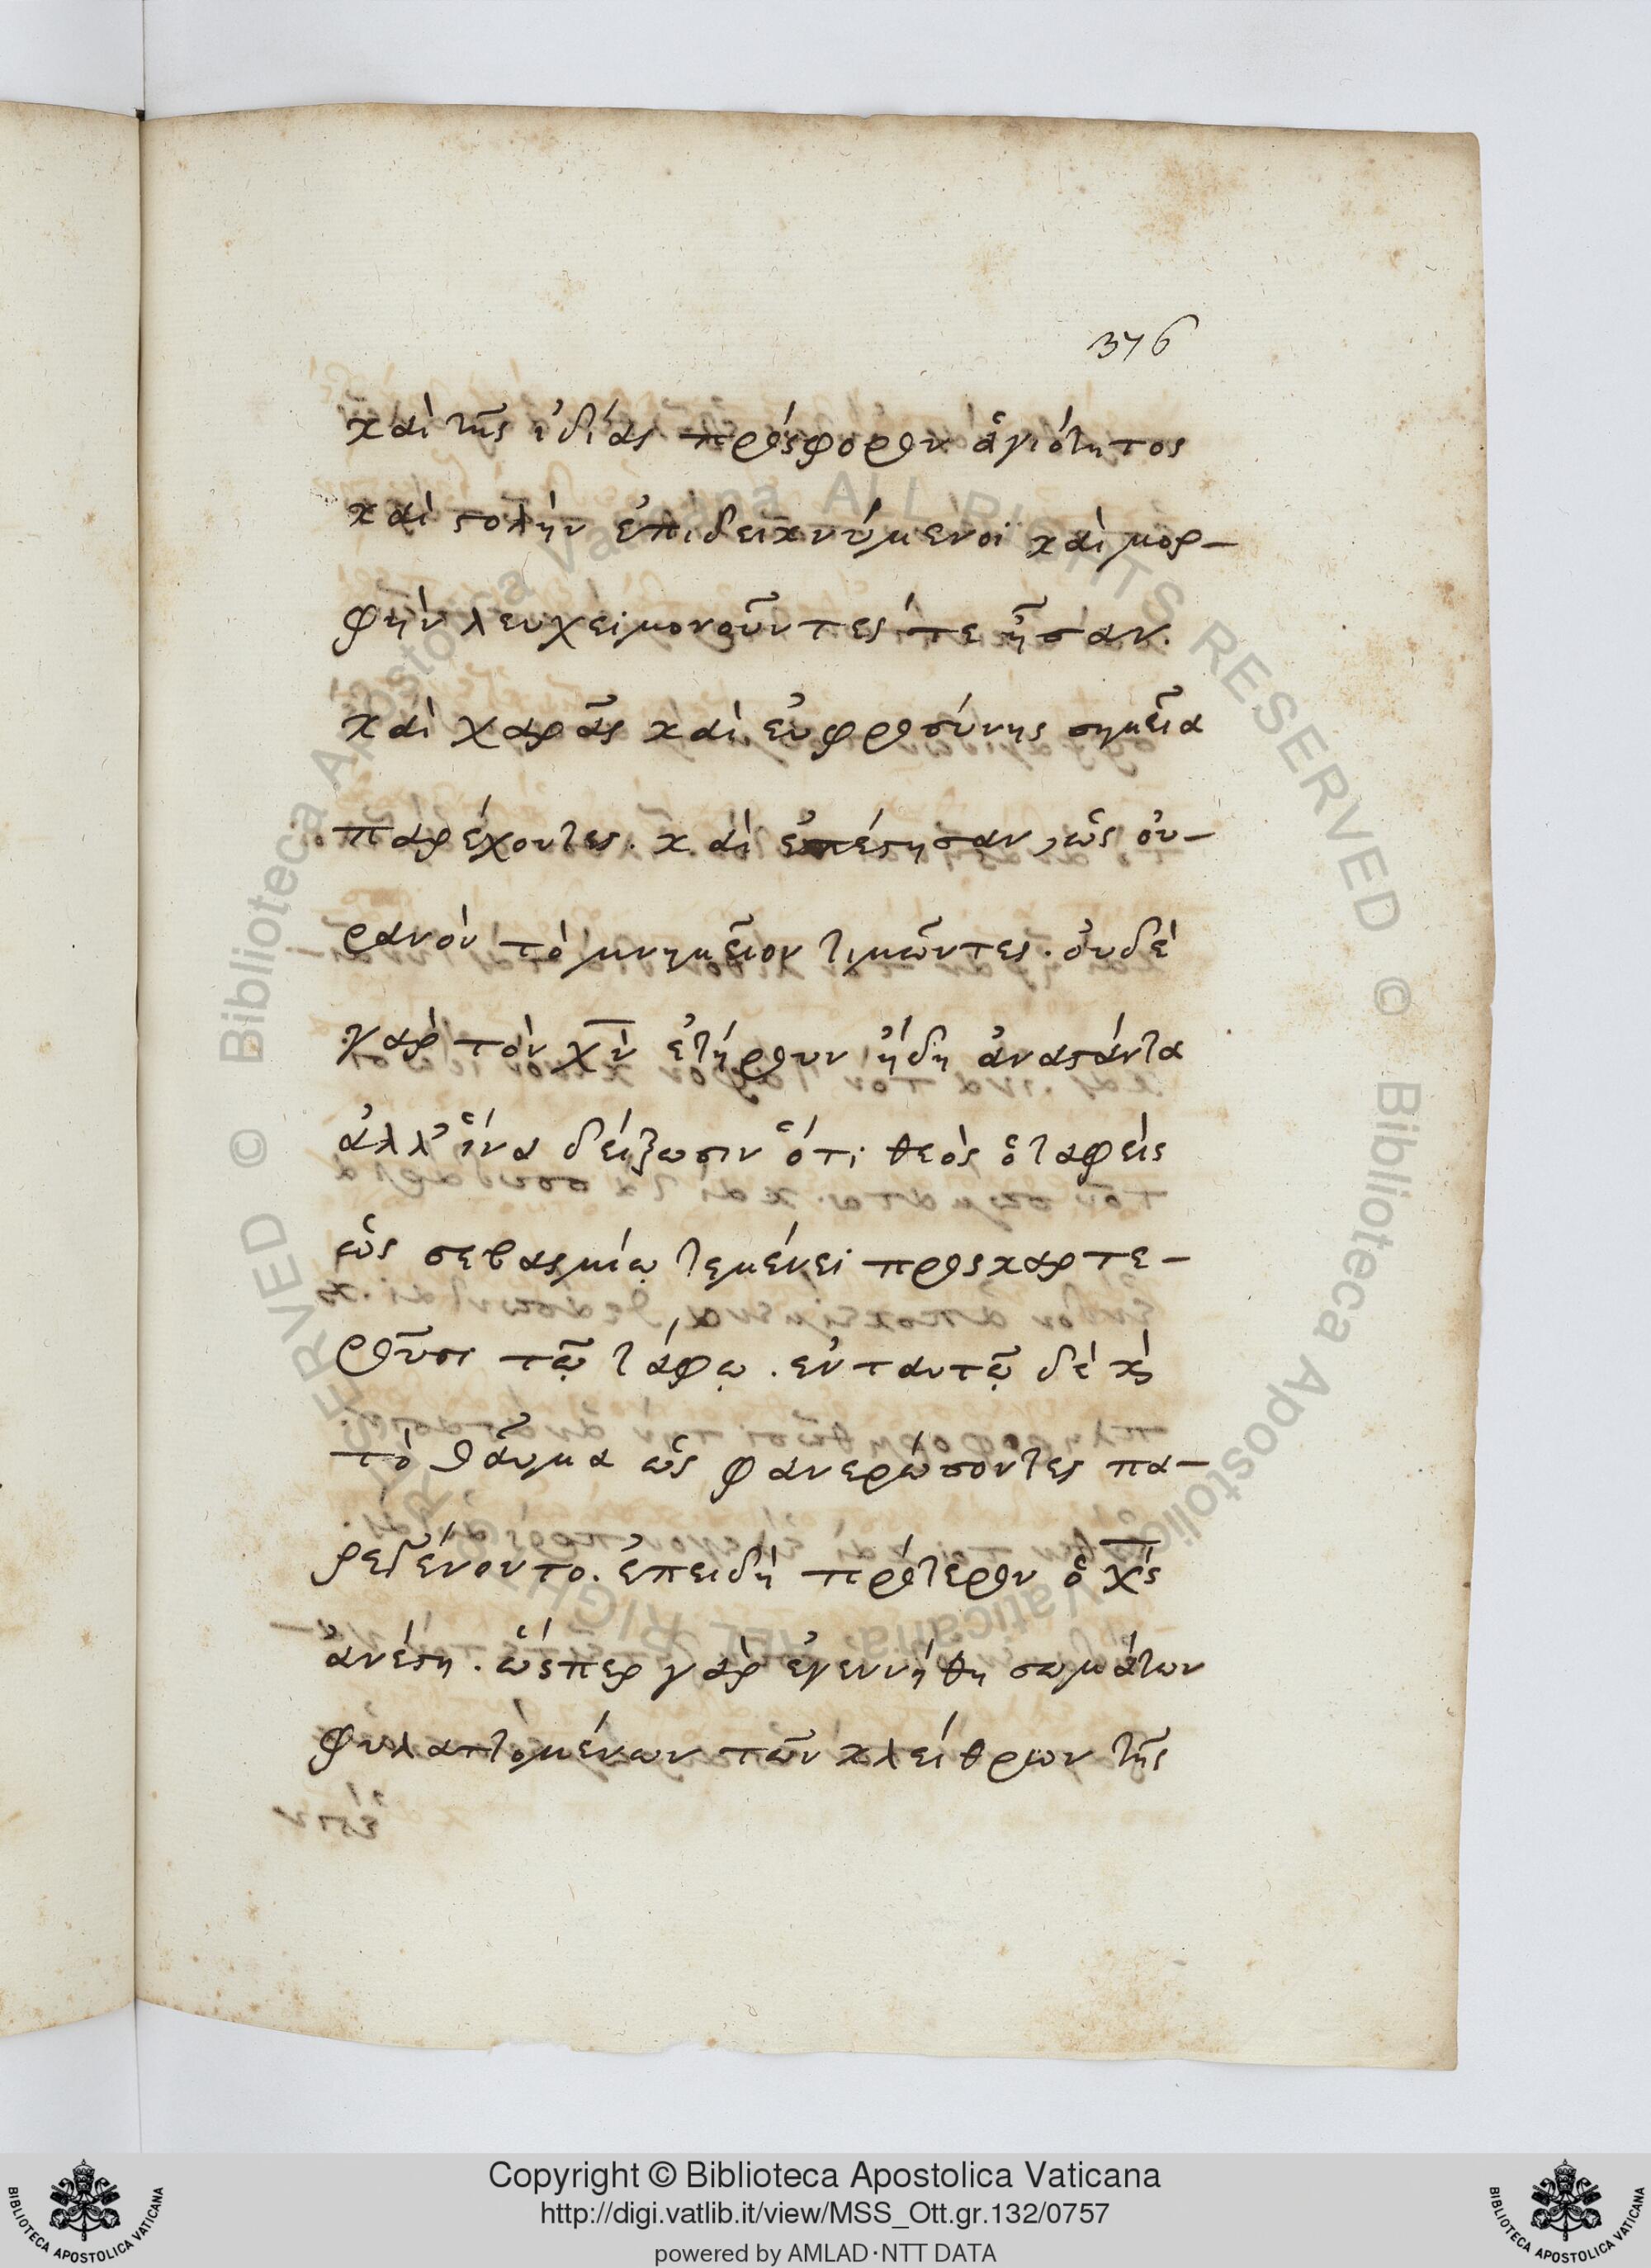 376
καὶ τῆς ἰδίας πρόσφορον ἁγιότητος
καὶ στολὴν ἐπιδεικνύμενοι καὶ μορ-
φὴν λευχειμονοῦντές τε ἦσαν.
καὶ χαρᾶς καὶ εὐφροσύνης σημεῖα
παρέχοντες. καὶ ἐπέστησαν, ὡς οὐ-
ρανὸν τὸ μνημεῖον τιμῶντες. οὐδὲ
γὰρ τὸν χ̅ν̅ ἐτήρουν ἤδη ἀναστάντα
ἀλλ' ἵνα δείξωσιν ὅτι θεὸς ὁ ταφείς
ὡς σεβασμίῳ τεμένει προσκαρτε-
ροῦσι τῷ τάφῳ. ἐν ταυτῷ δὲ κὶ
τὸ θαῦμα ὡς φανερώσοντες πα-
ρεγένοντο. ἐπειδὴ πρότερον ὁ χ̅ς̅
ἀνέστη. ὥσπερ γὰρ ἐγεννήθη σωμάτων
φυλαττομένων τῶν κλείθρων τῆς
© Biblioteca Apostolica Vaticana ALL RIGHTS RESERVED © Biblioteca Apostolica Vaticana ALL RIGHTS RESERVED
BIBLIOTECA APOSTOLICA VATICANA
Copyright © Biblioteca Apostolica Vaticana
http://digi.vatlib.it/view/MSS_Ott.gr.132/0757
powered by AMLAD·NTT DATA
BIBLIOTECA APOSTOLICA VATICANA